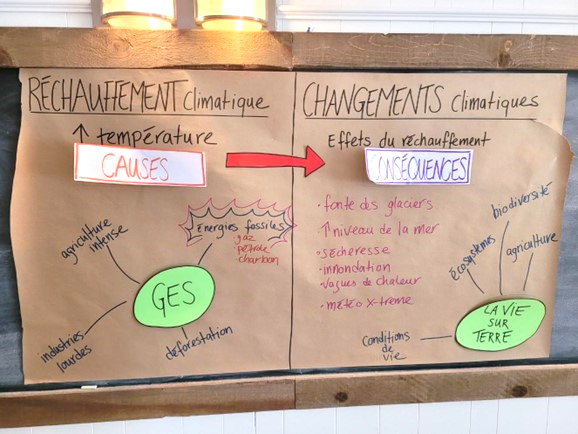 RÉCHAUFFEMENT climatique
↑ température
CAUSES
Énergies fossiles
gaz
pétrole
charbon
agriculture
intense
GES
industries
lourdes
déforestation
CHANGEMENTS climatiques
Effets du réchauffement
CONSÉQUENCES
• fonte des glaciers
↑ niveau de la mer
• sécheresse
• innondation
• vagues de chaleur
• météo x-trême
biodiversité
écosystèmes
agriculture
LA VIE
SUR
TERRE
conditions
de
vie